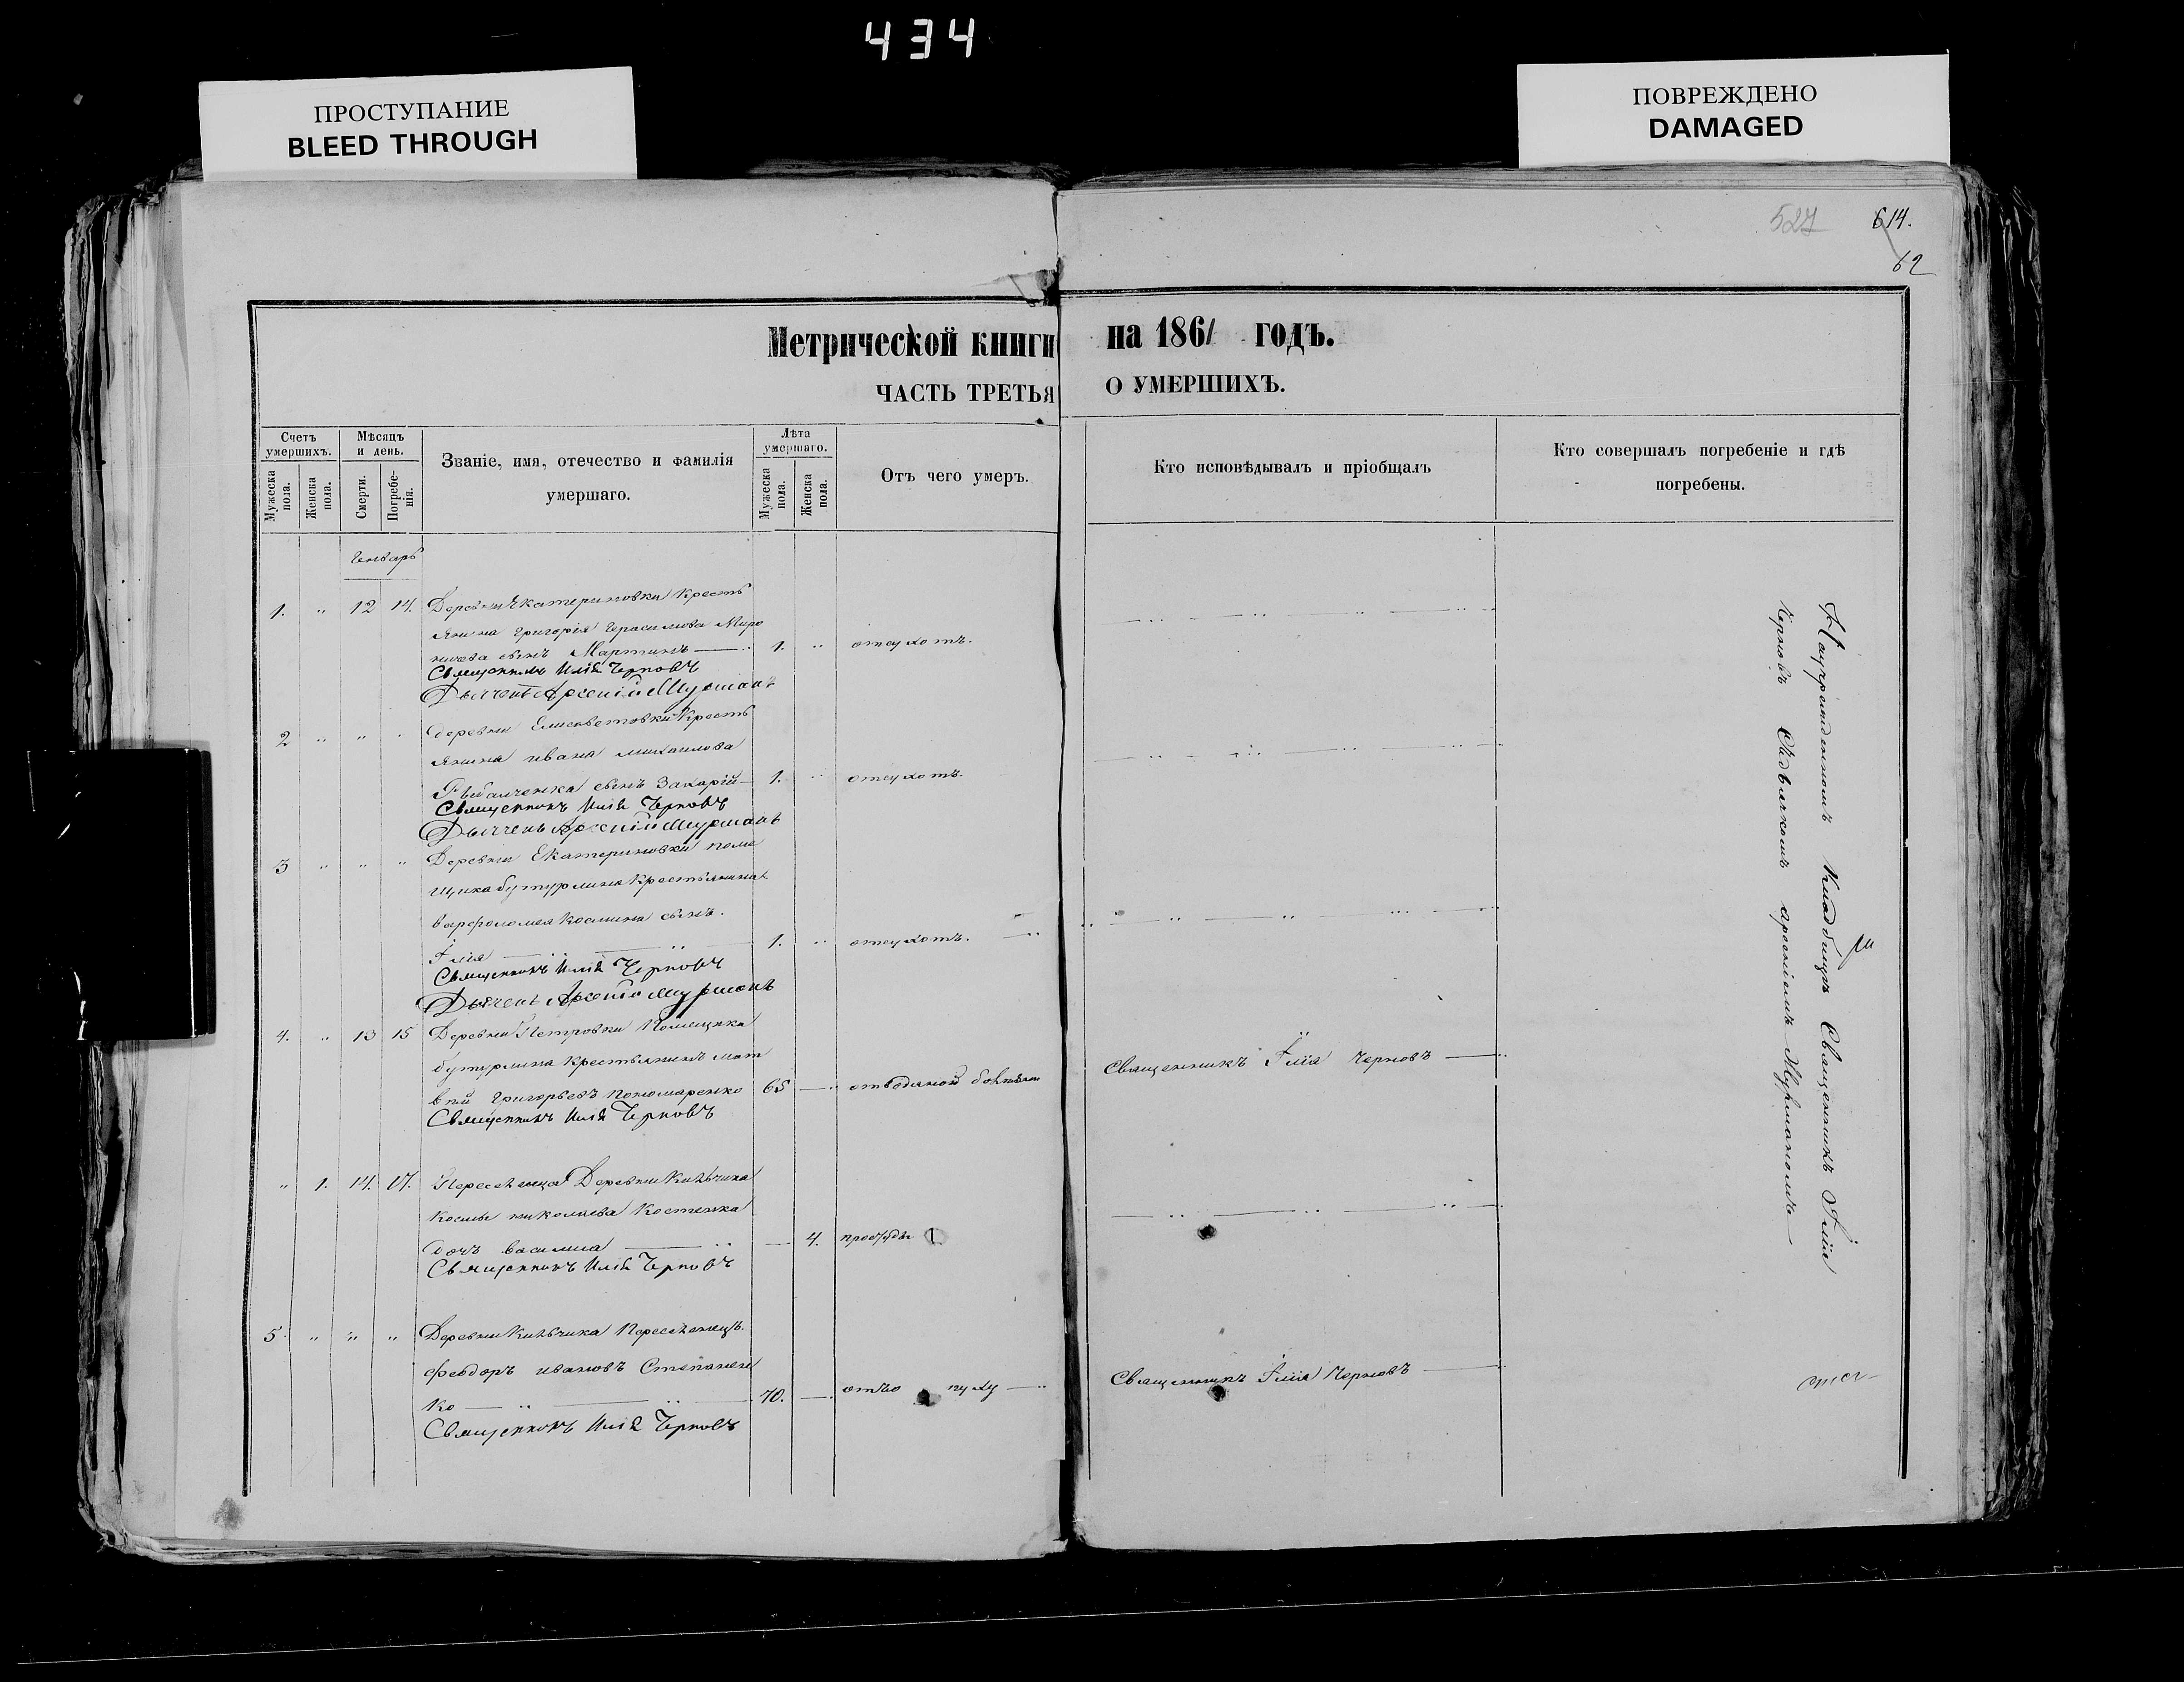 434
ПРОСТУПАНИЕ
BLEED THROUGH
ПОВРЕЖДЕНО
DAMAGED
527 614.
62
Метрической книги на 1861 годъ.
ЧАСТЬ ТРЕТЬЯ О УМЕРШИХЪ.
Счетъ умершихъ.
Мужеска пола.
Женска пола.
Мѣсяцъ и день.
Смерти.
Погребенія.
Званіе, имя, отечество и фамилія
умершаго.
Лѣта умершаго.
Мужеска пола.
Женска пола.
Отъ чего умеръ.
Кто исповѣдывалъ и пріобщалъ
Кто совершалъ погребеніе и гдѣ
погребены.
Генварь
1. " 12 14. Деревни Екатериновки Кресть
янина Григорія Герасимова Миро
ничева сынъ Мартинъ 1. " отсухотъ.
Священникъ Илія Черновъ
Дьячекъ Арсеній Мурманъ
2 " " " деревни Елисаветовки Кресть
янина ивана михаилова
Рыбалченка сынъ Захарій 1. " отсухотъ.
Священникъ Илія Черновъ
Дьячекъ Арсеній Мурманъ
3 " " " Деревни Екатериновки поме
щика бутурлина Крестьянина
варфоломея Космина сынъ.
Илія 1. " отсухотъ.
Священникъ Илія Черновъ
Дьячекъ Арсеній Мурманъ
4. " 13 15 Деревни Петровки Помещика
бутурлина Крестьянинъ мат
вей Григорьевъ Пономаренко 65 отводяной болѣзни Священникъ Илія Черновъ
Священникъ Илія Черновъ
" 1. 14. 17. Переселенца Деревни Кильчика
Космы николаева Костенка
дочь василиса 4. простуды
Священникъ Илія Черновъ
5. " " " Деревни Кильчика Переселенецъ.
Феодоръ ивановъ Степанен
ко 70. отъо пуху Священникъ Илія Черновъ
Священникъ Илія Черновъ
На Кладбищѣ Священникъ Илія
Черновъ арсеніемъ Мурманомъ